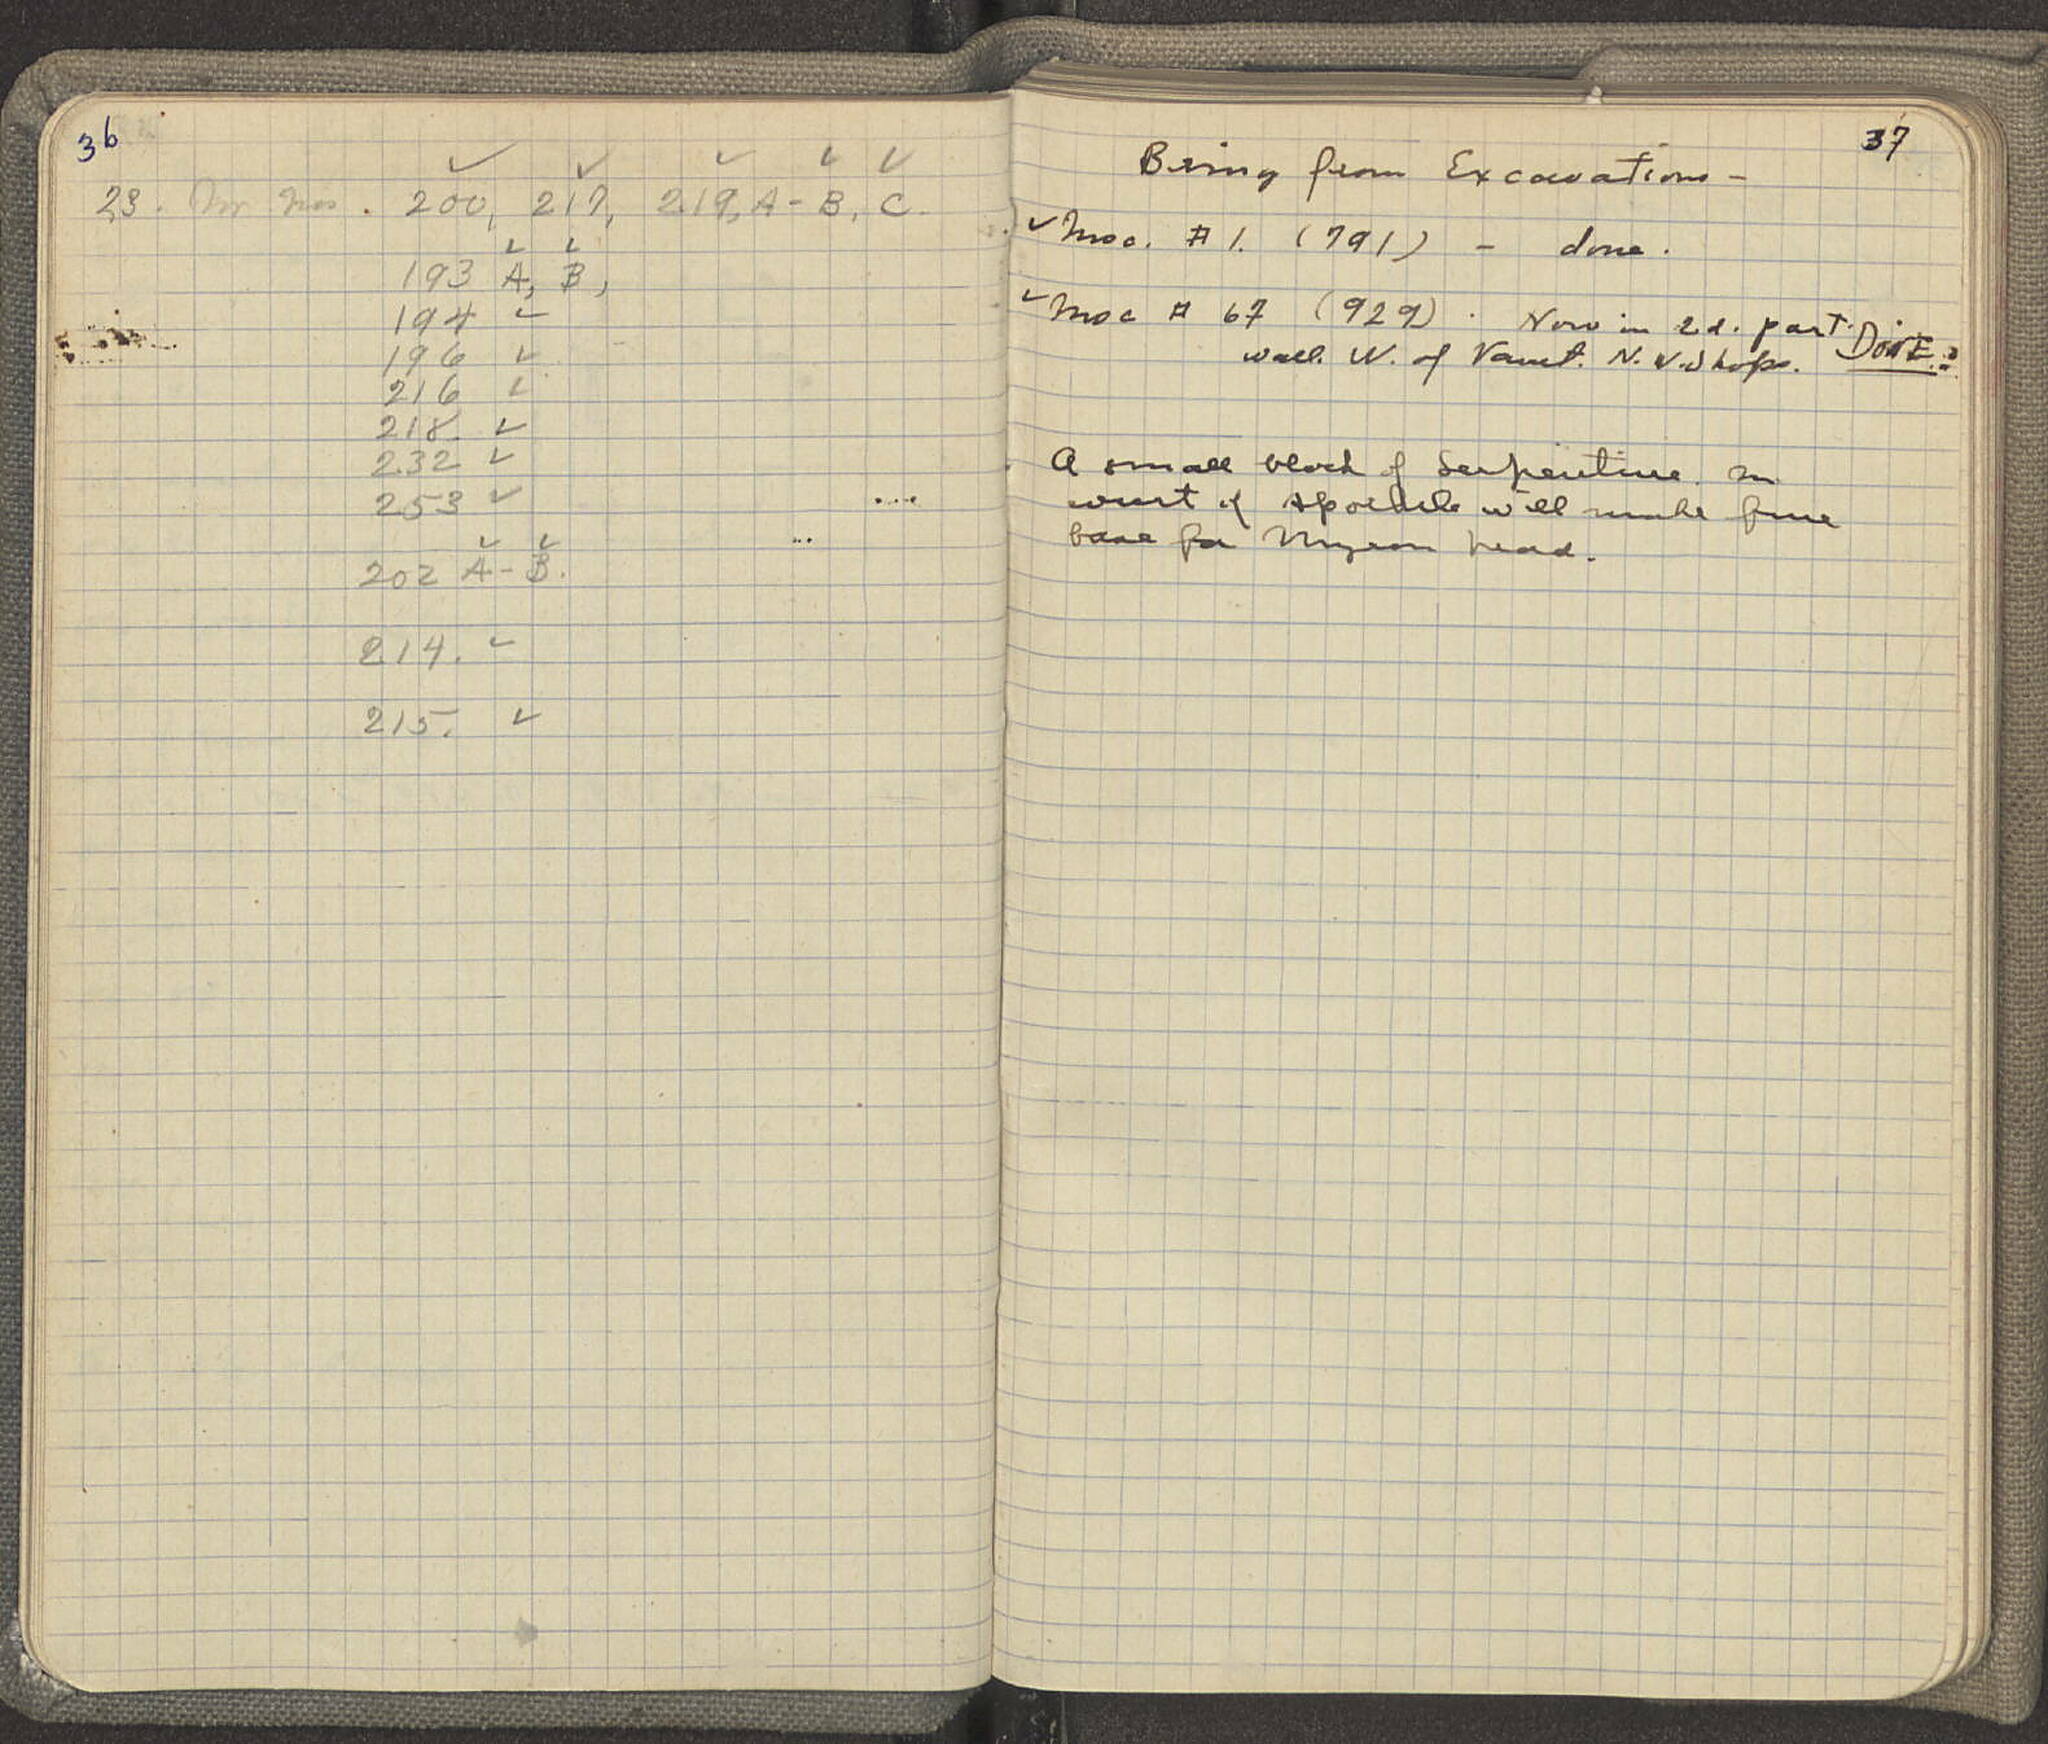 36
23. My Nos. 200, 217, 219, A - B, C.
193 A, B,
194 ✓
196 ✓
216 ✓
218 ✓
232 ✓
253 ✓
202 A - B.
214. ✓
215. ✓
37
Bring from Excavations -
✓ Mos. # 1. (791) - done.
✓ Mos # 67 (929). Now in 2d. part.
wall. W. of Vault. N. W. Shops. DONE.
A small block of Serpentine in
west of will make fine
base for Myron head.